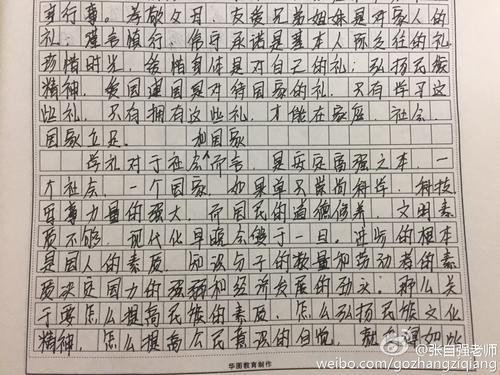 事行事。孝敬父母,友爱兄弟姐妹是对家人的
礼,谨言慎行,信守承诺是基本人际交往的礼
珍惜时光,爱惜身体是对自己的礼;弘扬民族
精神,爱国建国是对待国家的礼。只有学习这
些礼,只有拥有这些礼,才能在家庭、社会、
国家立足。 和国家
学礼对于社会而言,是安定富强之本,一
个社会,一个国家,如果单只崇尚科学,科技
力量的强大,而国民的道德修养,文明素
质不够,现代化早晚会毁于一旦。进步的根本
是国人的素质,知识分子的数量和劳动者的素
质决定国力的强弱和经济发展的动力。那么关
于要怎么提高民族的素质,怎么弘扬民族文化
精神,怎么提高公民意识的自觉,就如此
华图教育制作
@张自强老师
weibo.com/gozhangziqiang